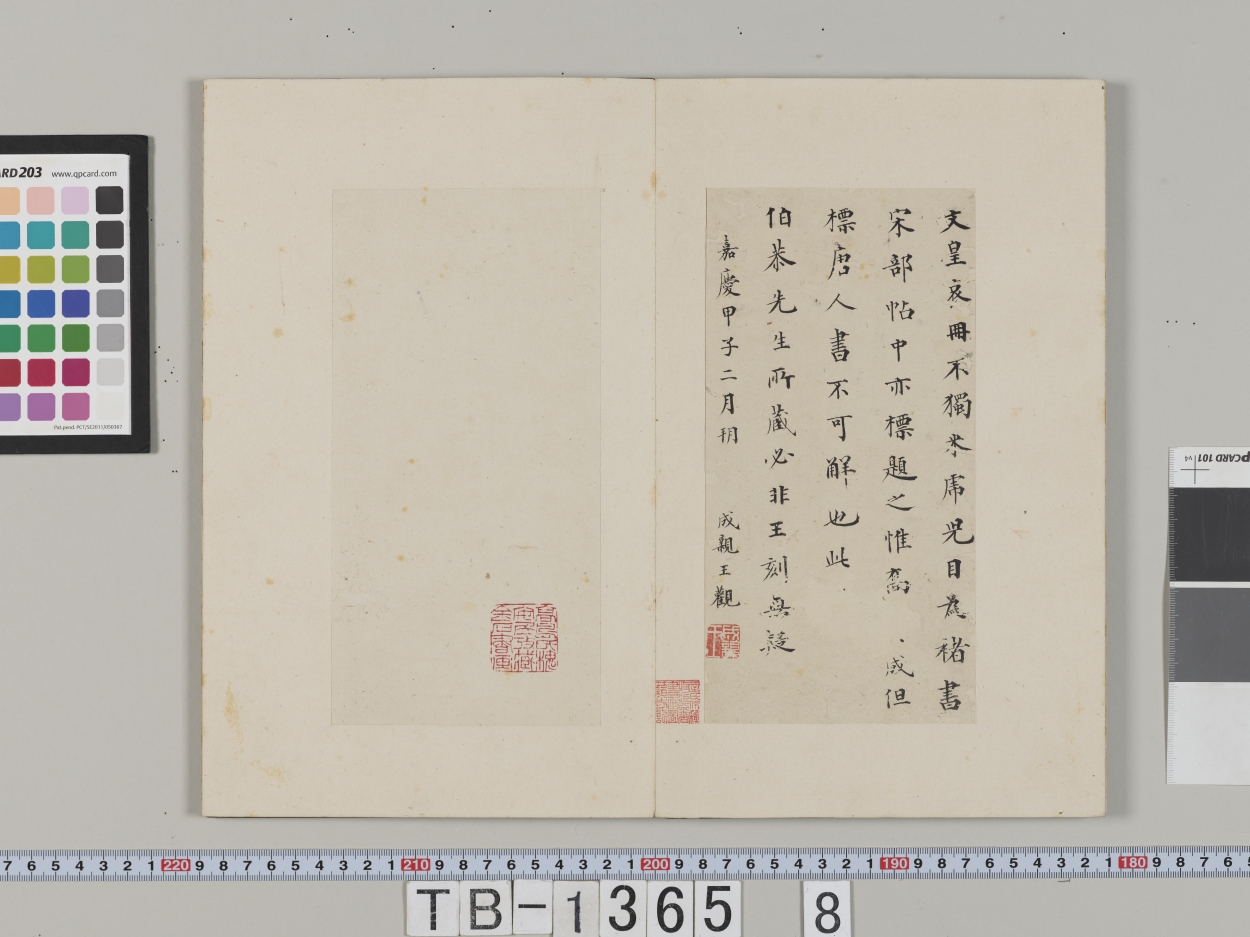 文皇哀冊不獨米虎兒目為褚書
宋部帖中亦標題之惟喬 成但
標唐人書不可解也此
伯恭先生所藏必非王刻無疑
嘉慶甲子二月朔 成親王觀
ARD203 www.qpcard.com
Pat.pend. PCT/SE2011/050367
QPCARD 101 v4
7 6 5 4 3 2 1 220 9 8 7 6 5 4 3 2 1 210 9 8 7 6 5 4 3 2 1 200 9 8 7 6 5 4 3 2 1 190 9 8 7 6 5 4 3 2 1 180 9 8 7 6 5
TB-1365 8